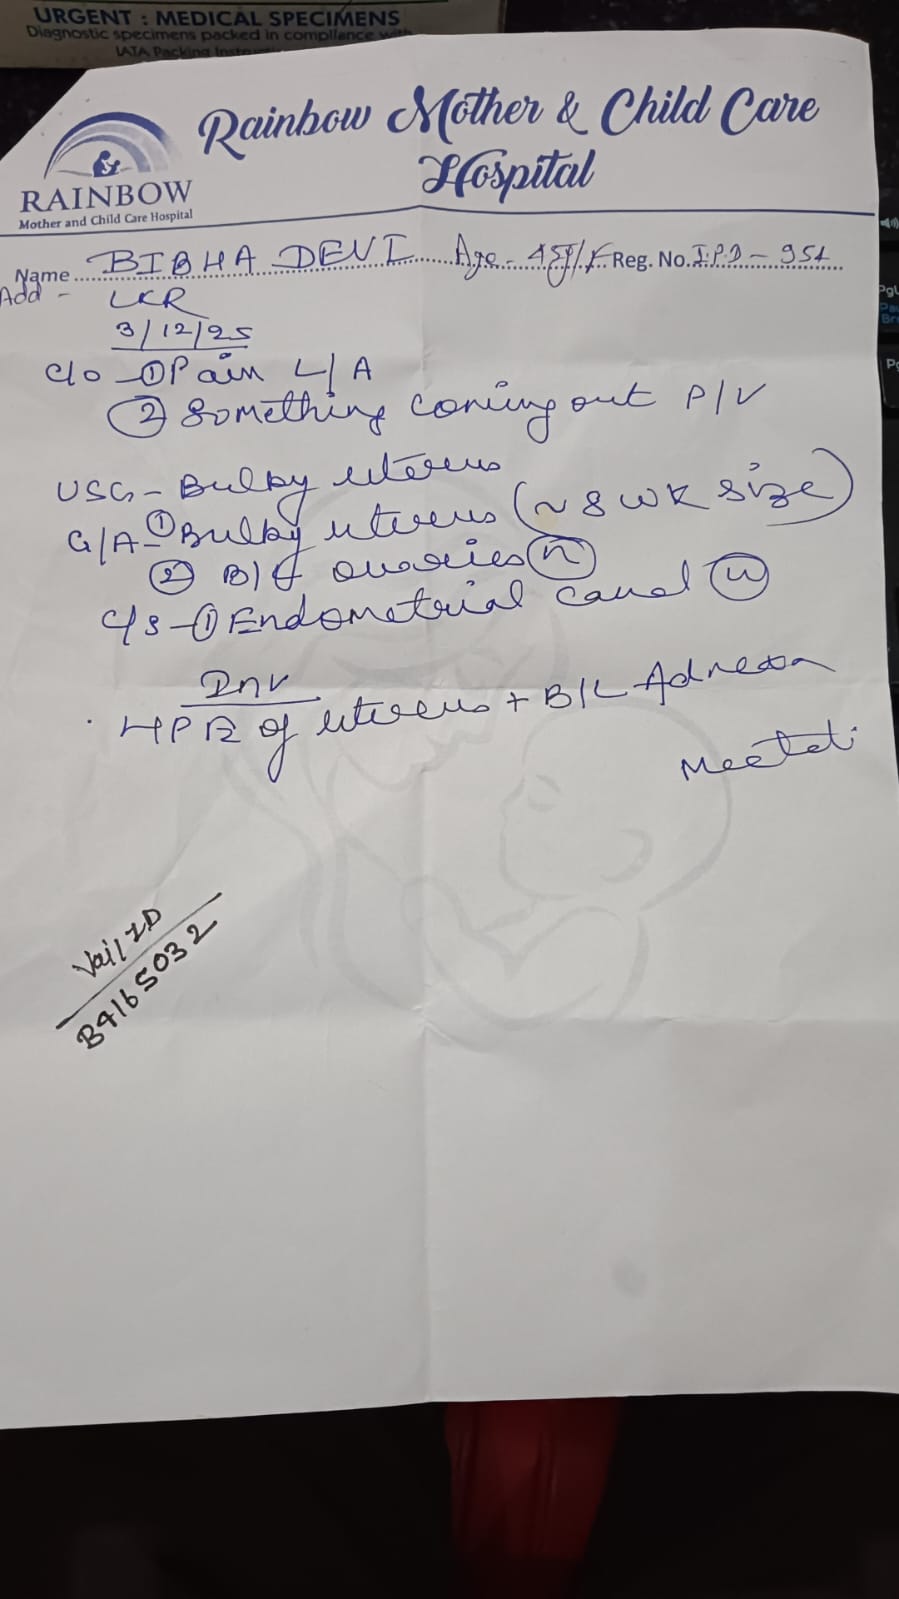 URGENT : MEDICAL SPECIMENS
Diagnostic specimens packed in compliance with
IATA Packing
Rainbow Mother & Child Care
Hospital
RAINBOW
Mother and Child Care Hospital
Name BIBHA DEVI Age - 45y/F Reg. No. I.P.D - 951
Add - LKR
3/12/25
c/o - ① Pain L/A
② Something coming out P/V
USG - Bulky uterus
G/A - ① Bulky uterus (~ 8 wk size)
② B/L ovaries (n)
C/S - ① Endometrial canal
Inv
HPR of uterus + B/L Adnexa
Vail ID
B4165032
PgU